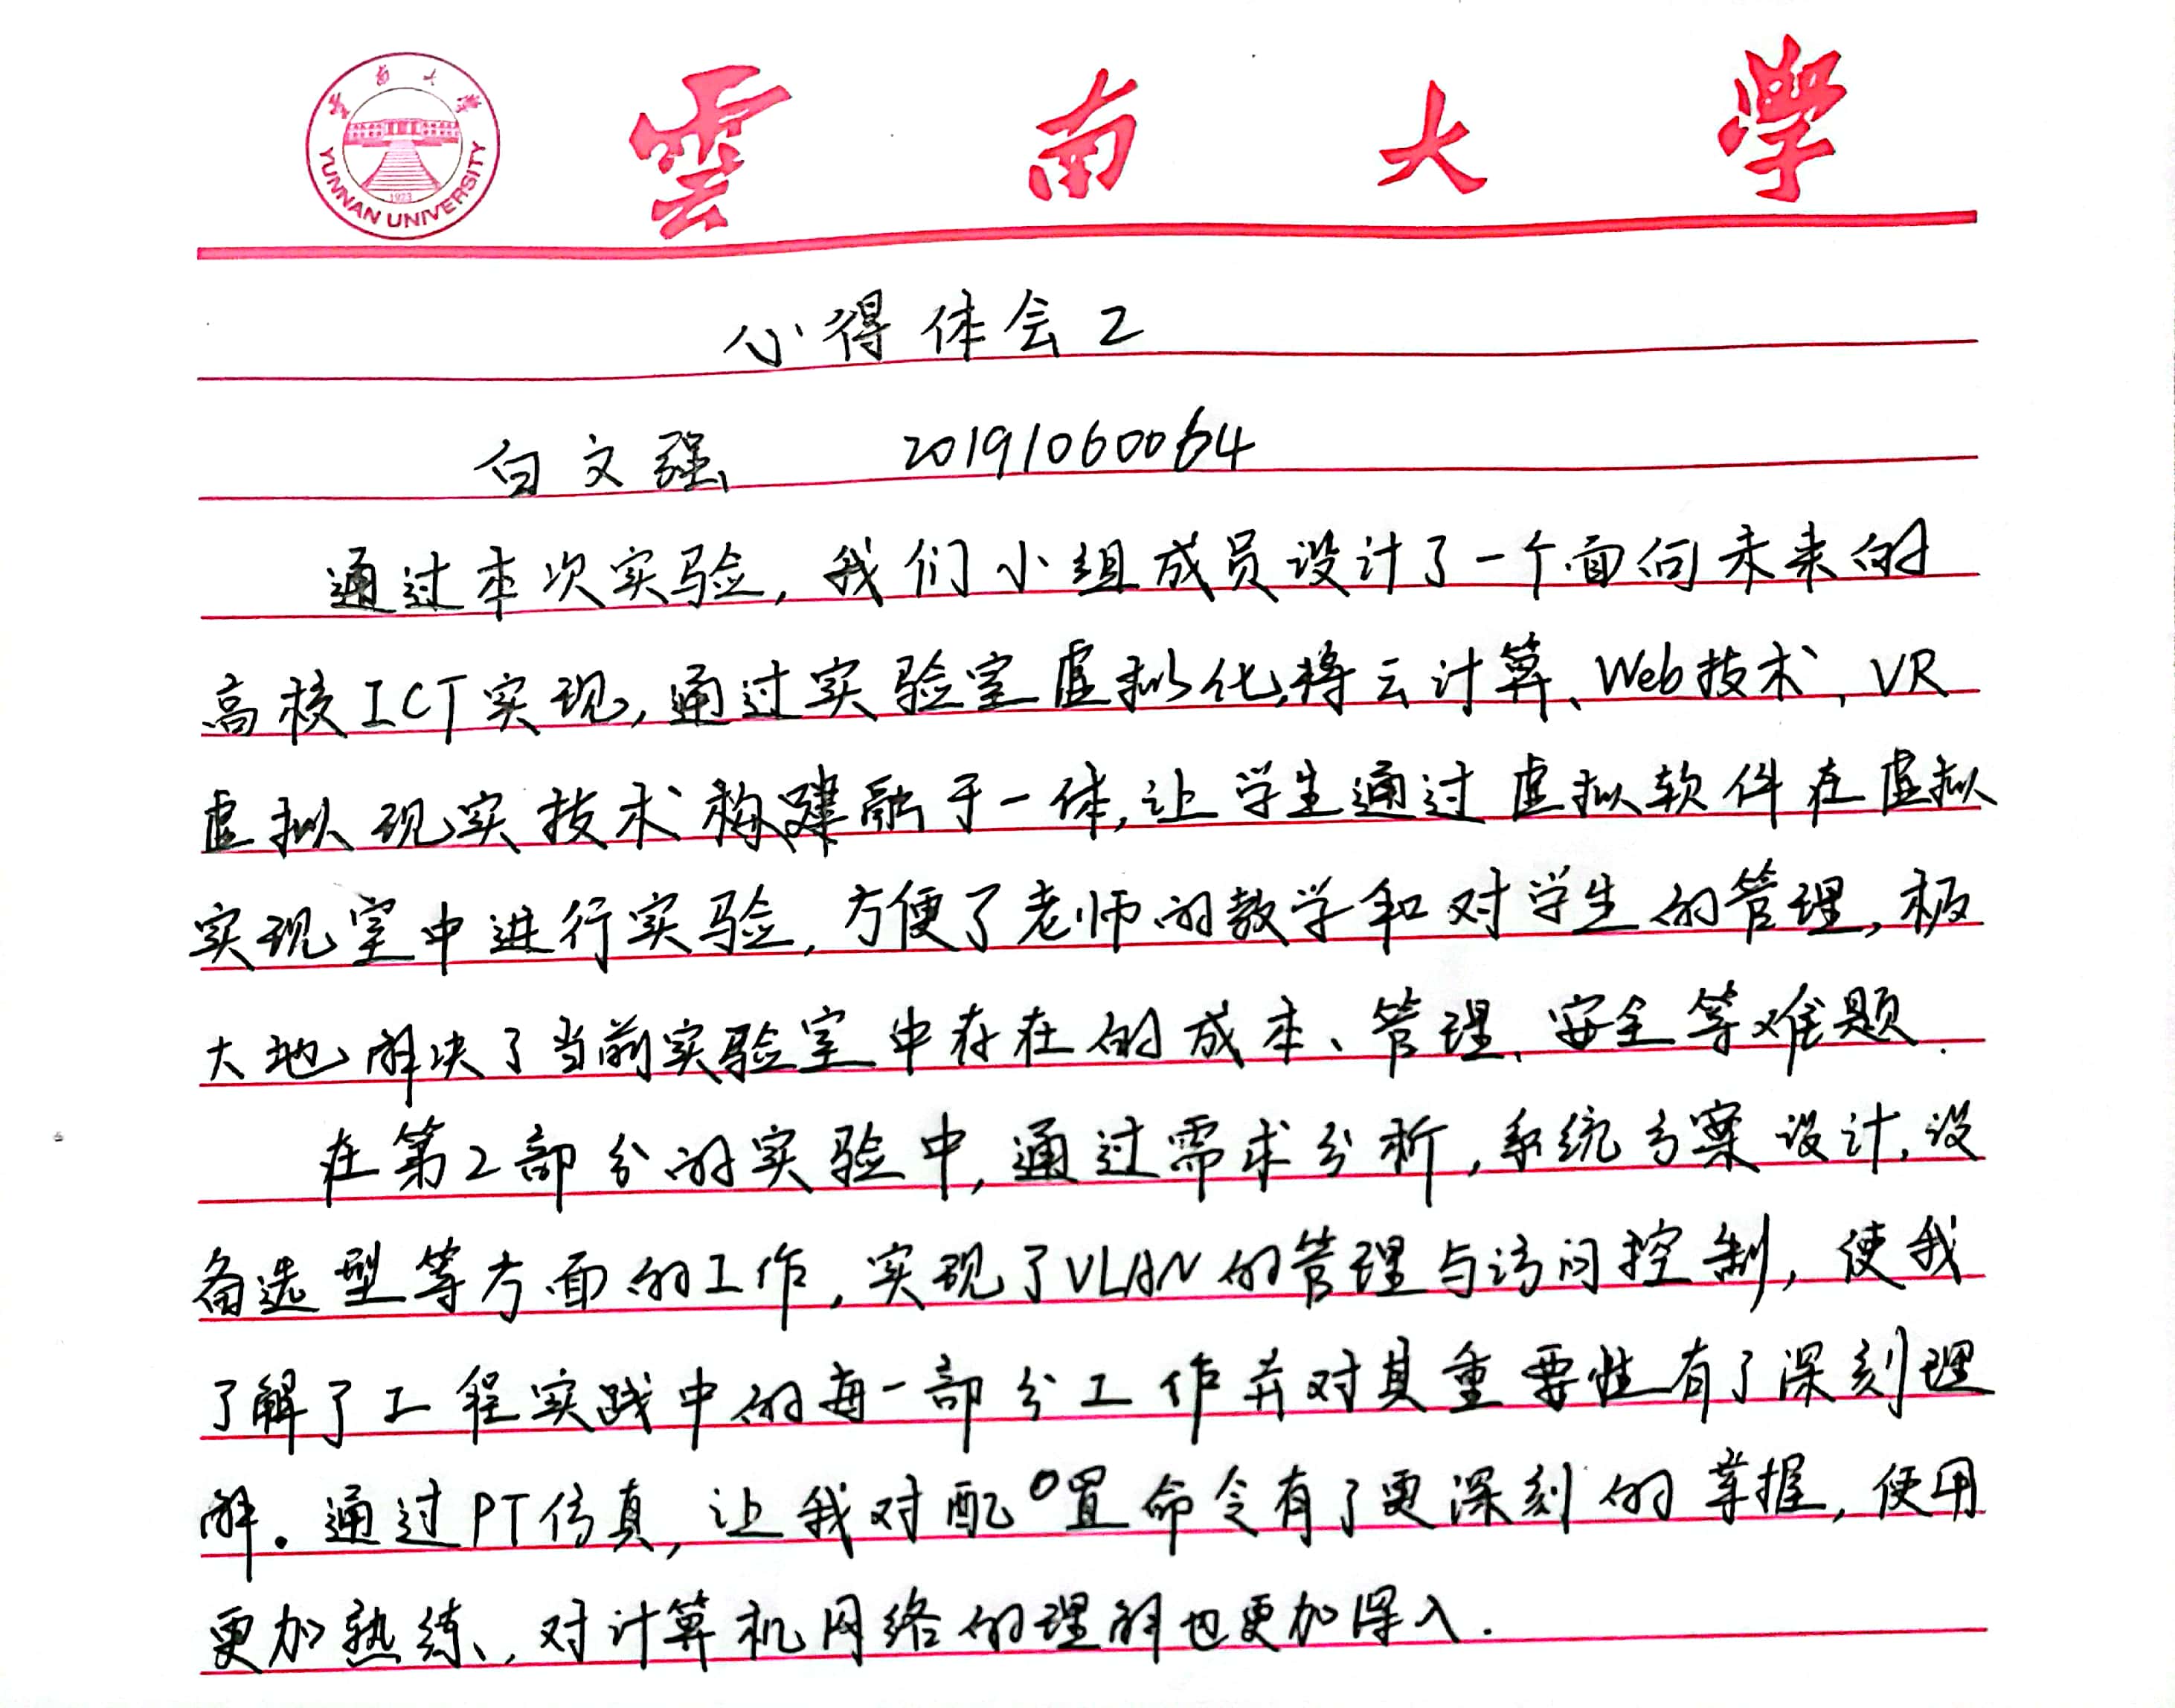 云南大学
YUNNAN UNIVERSITY
1923
雲南大學
心得体会2
白文强 20191060064
通过本次实验,我们小组成员设计了一个面向未来的
高校ICT实现,通过实验室虚拟化,将云计算、Web技术、VR
虚拟现实技术构建融于一体,让学生通过虚拟软件在虚拟
实现室中进行实验,方便了老师的教学和对学生的管理,极
大地解决了当前实验室中存在的成本、管理、安全等难题.
在第2部分的实验中,通过需求分析,系统方案设计,设
备选型等方面的工作,实现了VLAN的管理与访问控制,使我
了解了工程实践中的每一部分工作并对其重要性有了深刻理
解。通过PT仿真,让我对配置命令有了更深刻的掌握,使用
更加熟练,对计算机网络的理解也更加深入.